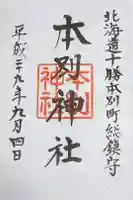 北海道十勝本別町総鎮守
本別神社
本別神社
平成二十九年九月四日